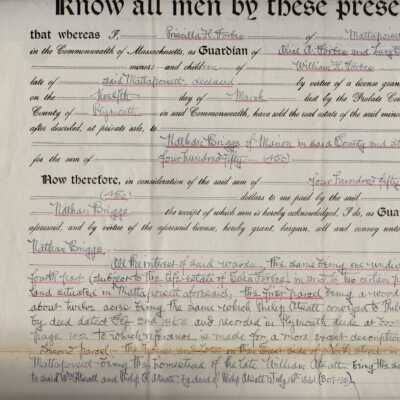 Know all men by these prese
that whereas I, Priscilla H. Forbes of Mattapoisett
in the Commonwealth of Massachusetts, as Guardian of A. Forbes and
minors and children of William H. Forbes
late of said Mattapoisett deceased by virtue of a license gran
on the twelfth day of March last by the Probate Cou
County of Plymouth in said Commonwealth, have sold the real estate of the said minor
after described, at private sale, to
Nathan Briggs of Marion in said County and st
for the sum of four hundred fifty (450)
Now therefore, in consideration of the said sum of four hundred fifty
(450) dollars to me paid by the said
Nathan Briggs the receipt of which sum is hereby acknowledged, I do, as Gua
aforesaid, and by virtue of the aforesaid license, hereby grant, bargain, sell and convey unto
Nathan Briggs
all the interest of said wards, the same being one undiv
fourth part (subject to the life estate of Forbes) in and to two certain p
land situated in Mattapoisett aforesaid, the first parcel being a wood
about twelve acres being the same which Philip Atsatt conveyed to Phili
by deed dated and recorded in Plymouth deeds at
page to which reference is made for a more exact description
Second parcel on the East side of North street in
Mattapoisett being the homestead of the late William Atsatt being the sa
to said Wm Atsatt and Philip A. Atsatt by deed of Philip Atsatt July